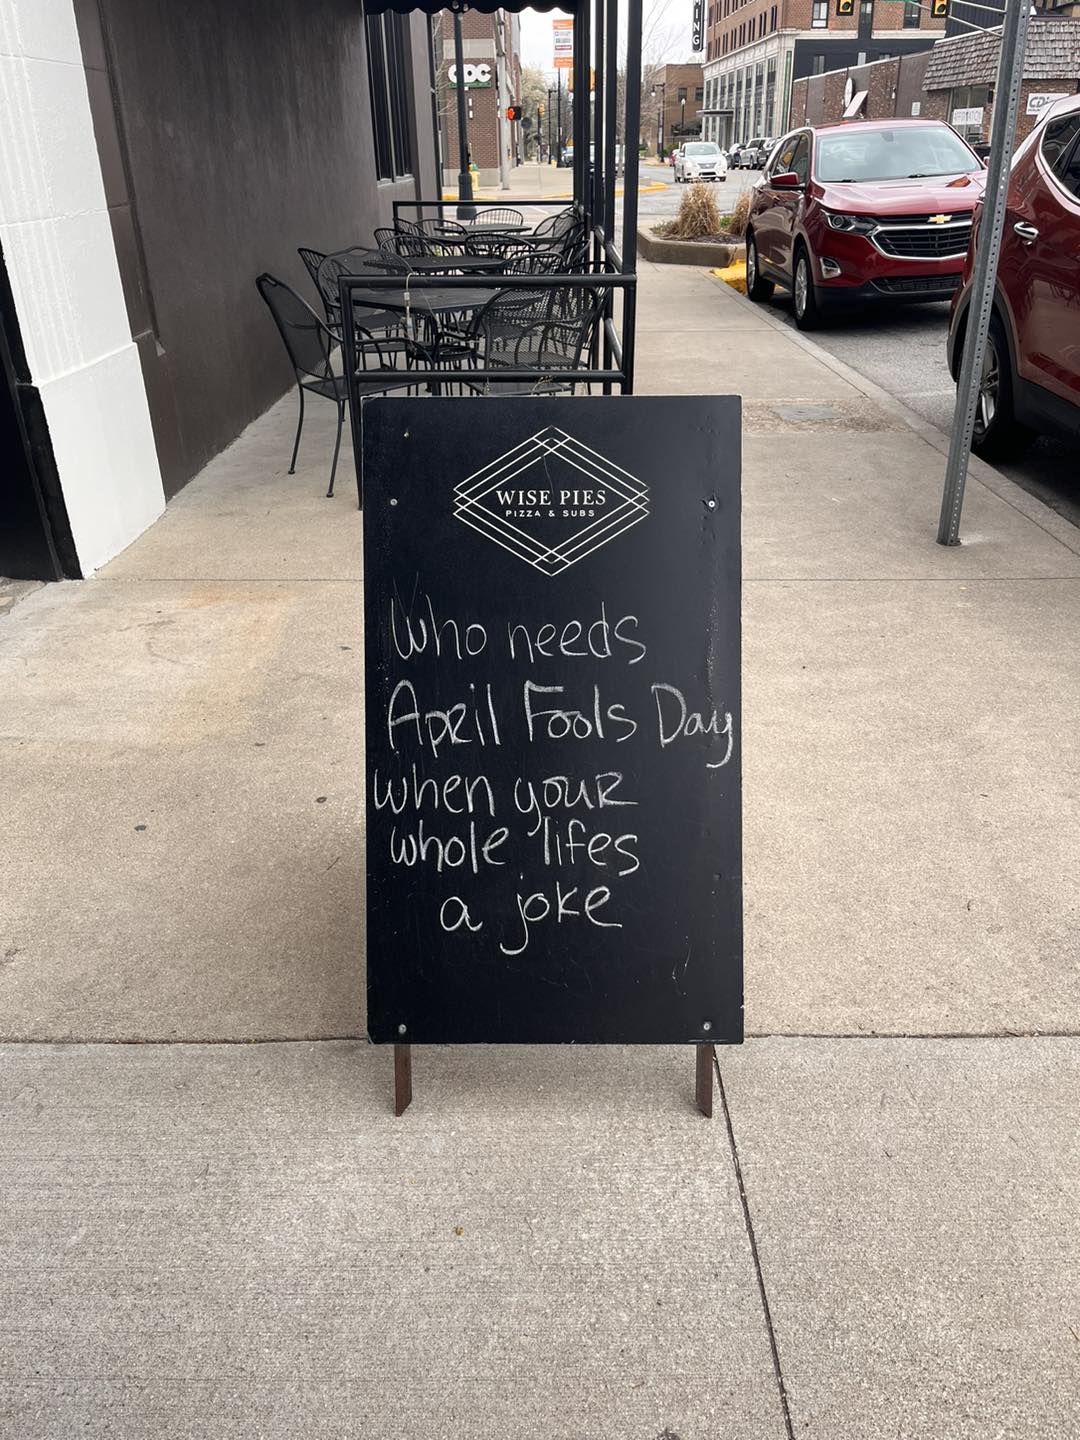 CDC
WISE PIES
PIZZA & SUBS
Who needs
April Fools Day
when your
whole lifes
a joke